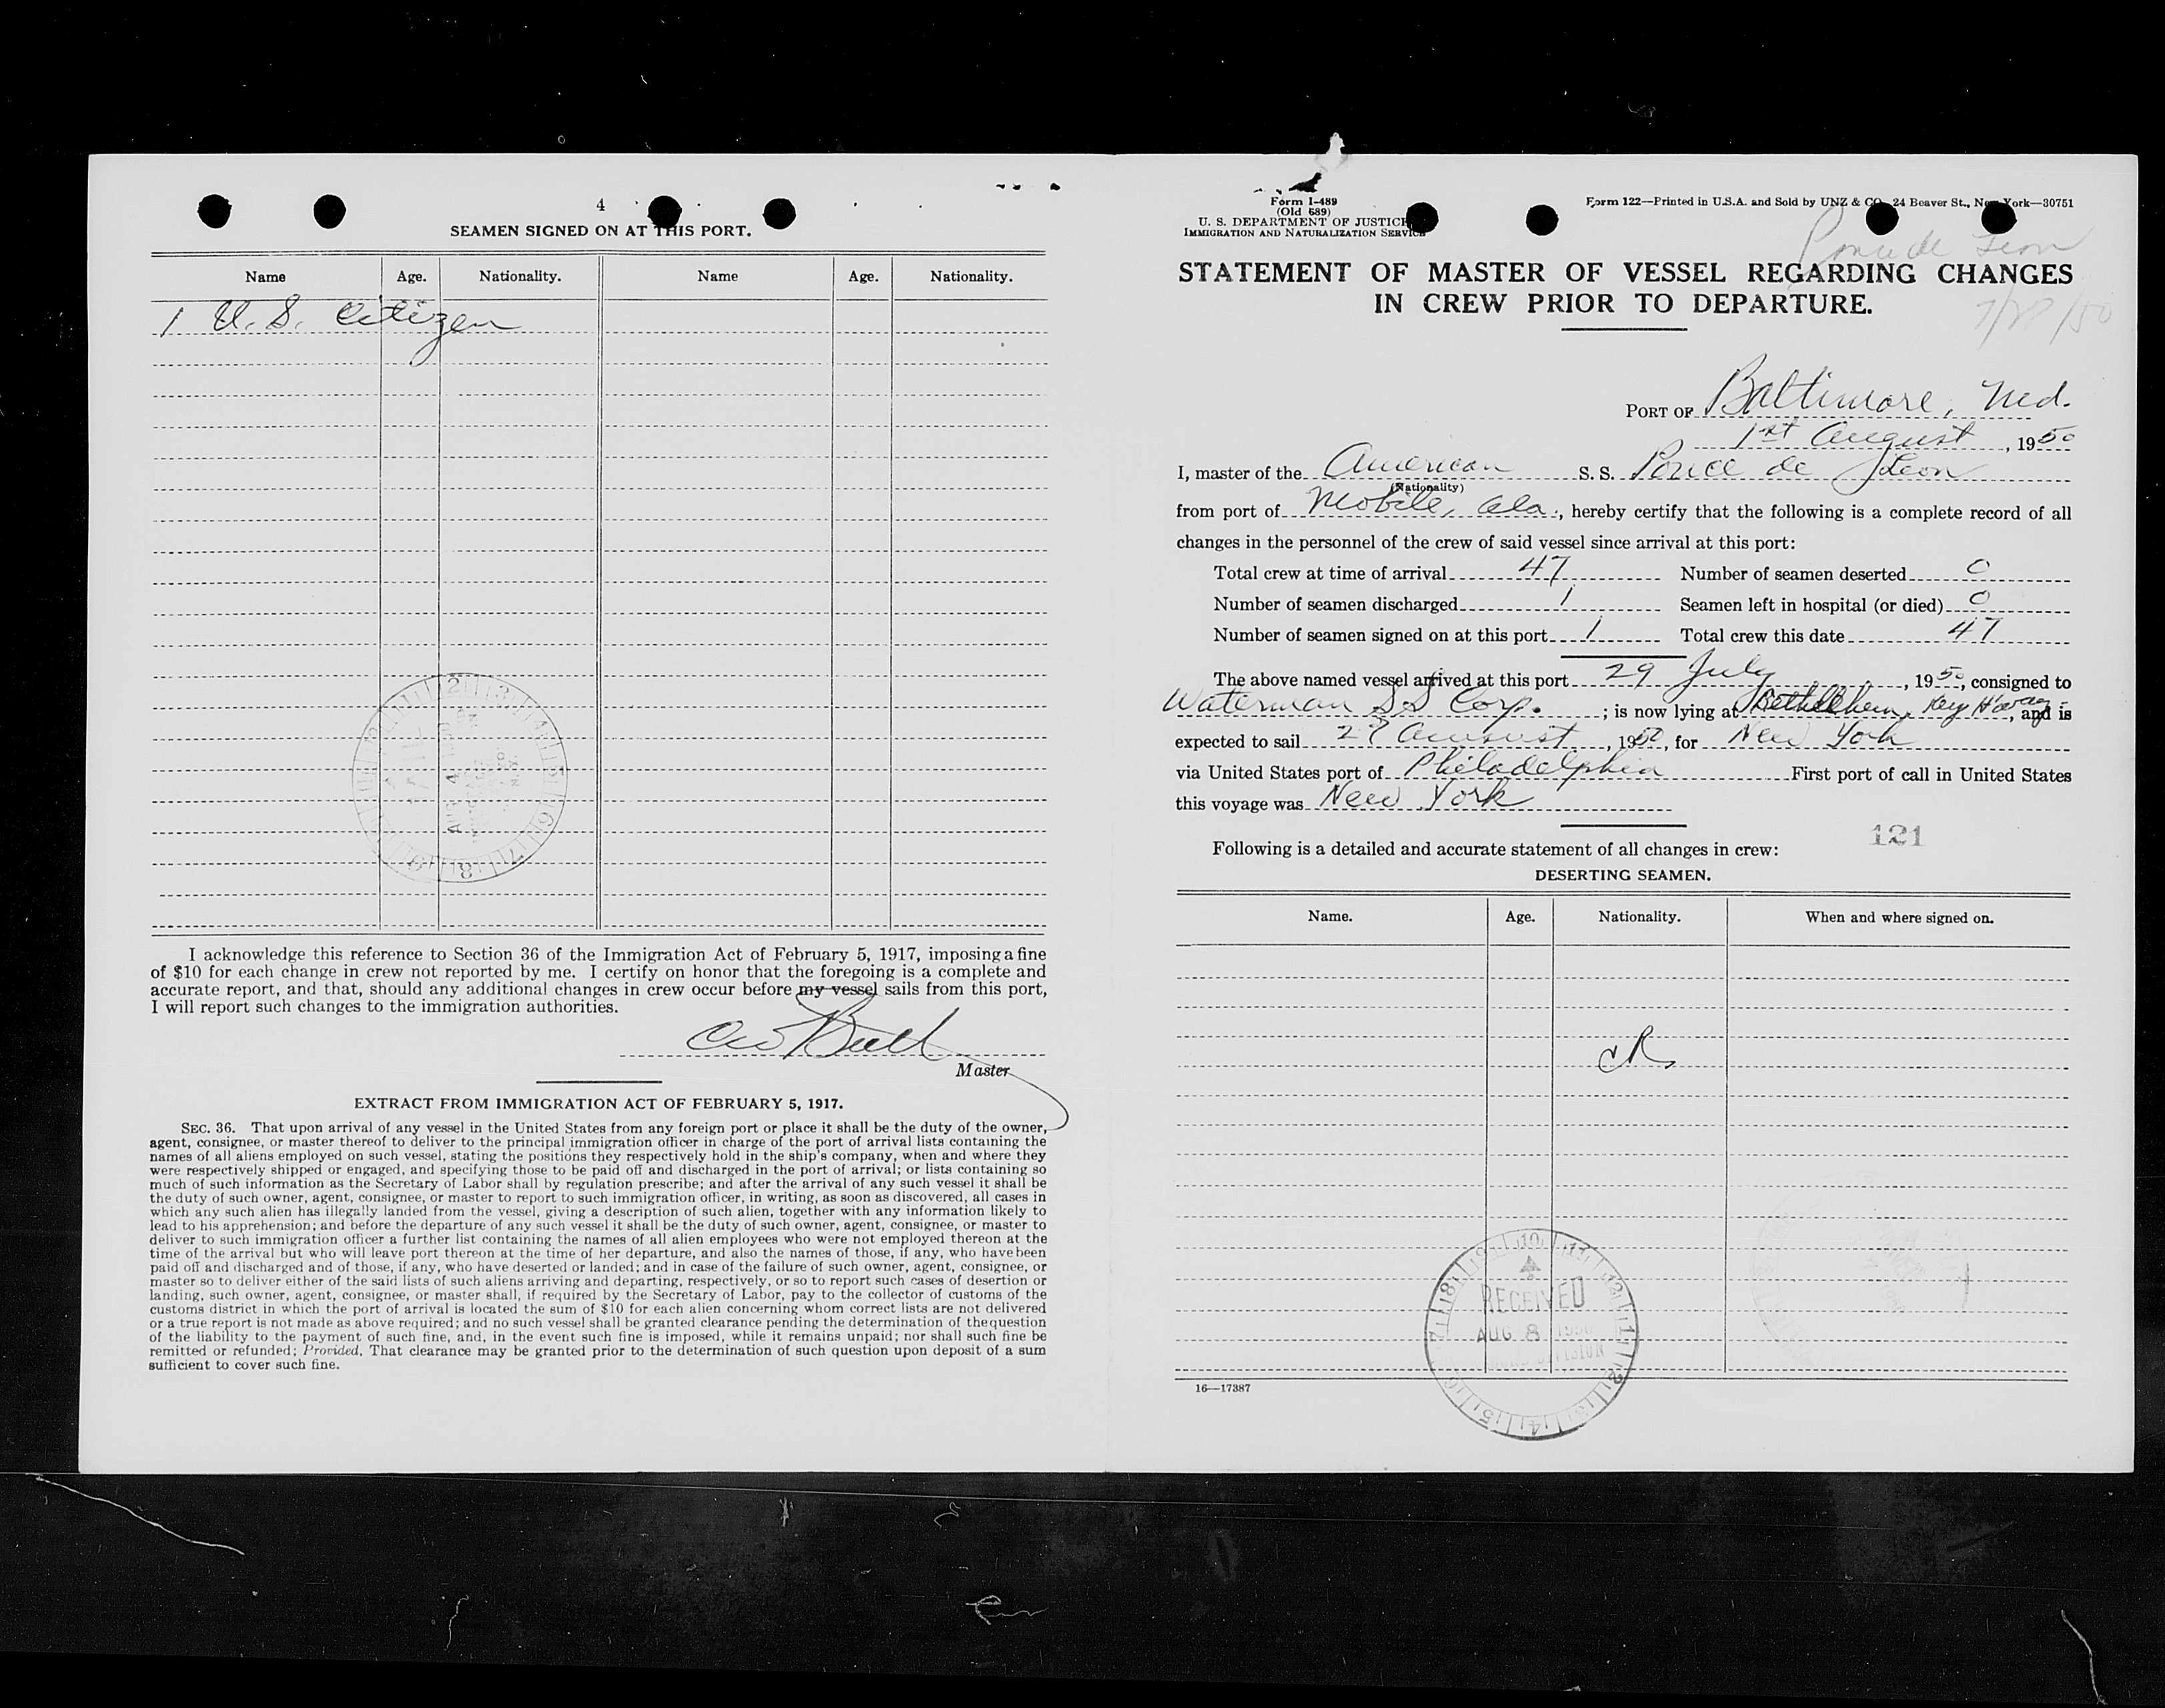 4
SEAMEN SIGNED ON AT THIS PORT.
Name Age. Nationality. Name Age. Nationality.
1 U.S. Citizen
I acknowledge this reference to Section 36 of the Immigration Act of February 5, 1917, imposing a fine
of $10 for each change in crew not reported by me. I certify on honor that the foregoing is a complete and
accurate report, and that, should any additional changes in crew occur before my vessel sails from this port,
I will report such changes to the immigration authorities.
Master
EXTRACT FROM IMMIGRATION ACT OF FEBRUARY 5, 1917.
SEC. 36. That upon arrival of any vessel in the United States from any foreign port or place it shall be the duty of the owner,
agent, consignee, or master thereof to deliver to the principal immigration officer in charge of the port of arrival lists containing the
names of all aliens employed on such vessel, stating the positions they respectively hold in the ship's company, when and where they
were respectively shipped or engaged, and specifying those to be paid off and discharged in the port of arrival; or lists containing so
much of such information as the Secretary of Labor shall by regulation prescribe; and after the arrival of any such vessel it shall be
the duty of such owner, agent, consignee, or master to report to such immigration officer, in writing, as soon as discovered, all cases in
which any such alien has illegally landed from the vessel, giving a description of such alien, together with any information likely to
lead to his apprehension; and before the departure of any such vessel it shall be the duty of such owner, agent, consignee, or master to
deliver to such immigration officer a further list containing the names of all alien employees who were not employed thereon at the
time of the arrival but who will leave port thereon at the time of her departure, and also the names of those, if any, who have been
paid off and discharged and of those, if any, who have deserted or landed; and in case of the failure of such owner, agent, consignee, or
master so to deliver either of the said lists of such aliens arriving and departing, respectively, or so to report such cases of desertion or
landing, such owner, agent, consignee, or master shall, if required by the Secretary of Labor, pay to the collector of customs of the
customs district in which the port of arrival is located the sum of $10 for each alien concerning whom correct lists are not delivered
or a true report is not made as above required; and no such vessel shall be granted clearance pending the determination of the question
of the liability to the payment of such fine, and, in the event such fine is imposed, while it remains unpaid; nor shall such fine be
remitted or refunded; Provided, That clearance may be granted prior to the determination of such question upon deposit of a sum
sufficient to cover such fine.
Form I-489
(Old 689)
U. S. DEPARTMENT OF JUSTICE
IMMIGRATION AND NATURALIZATION SERVICE
Form 122—Printed in U.S.A. and Sold by UNZ & CO., 24 Beaver St., New York—30751
Ponce de Leon
STATEMENT OF MASTER OF VESSEL REGARDING CHANGES
IN CREW PRIOR TO DEPARTURE.
PORT OF Baltimore, Md.
1st August, 1950
I, master of the American S.S. Ponce de Leon
(Nationality)
from port of Mobile, Ala., hereby certify that the following is a complete record of all
changes in the personnel of the crew of said vessel since arrival at this port:
Total crew at time of arrival 47 Number of seamen deserted 0
Number of seamen discharged 1 Seamen left in hospital (or died) 0
Number of seamen signed on at this port 1 Total crew this date 47
The above named vessel arrived at this port 29 July, 1950, consigned to
Waterman SS Corp.; is now lying at Bethlehem, Key and is
expected to sail August, 1950, for New York
via United States port of Philadelphia First port of call in United States
this voyage was New York
121
Following is a detailed and accurate statement of all changes in crew:
DESERTING SEAMEN.
Name. Age. Nationality. When and where signed on.
RECEIVED
AUG 8 1950
16—17387